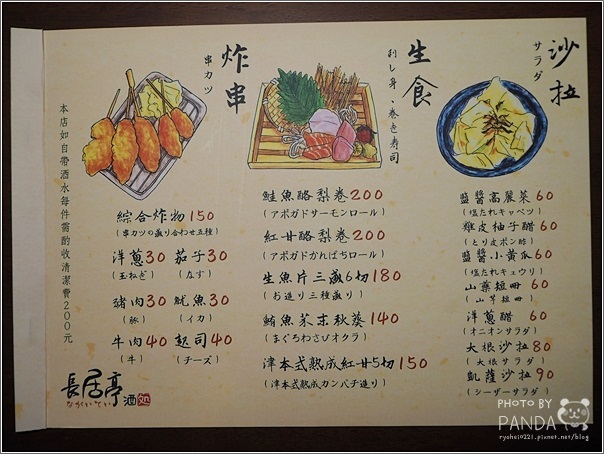 沙拉
サラダ
鹽醬高麗菜 60
(塩たれキャベツ)
雞皮柚子醋 60
(とり皮ポン酢)
鹽醬小黃瓜 60
(塩たれキュウリ)
山藥短冊 60
(山芋短冊)
洋蔥醋 60
(オニオンサラダ)
大根沙拉 80
(大根サラダ)
凱薩沙拉 90
(シーザーサラダ)
生食
刺し身・巻き寿司
鮭魚酪梨卷 200
(アボガドサーモンロール)
紅甘酪梨卷 200
(アボガドかんぱちロール)
生魚片三盛6切 180
(お造り三種盛り)
鮪魚芥末秋葵 140
(まぐろわさびオクラ)
津本式熟成紅甘5切 150
(津本式熟成カンパチ造り)
炸串
串カツ
綜合炸物 150
(串カツの盛り合わせ五種)
洋蔥 30 茄子 30
(玉ねぎ) (なす)
豬肉 30 魷魚 30
(豚) (イカ)
牛肉 40 起司 40
(牛) (チーズ)
本店如自帶酒水每件需酌收清潔費200元
長居亭 酒処
ながいてい
PHOTO BY
PANDA
ryohei0221.pixnet.net/blog